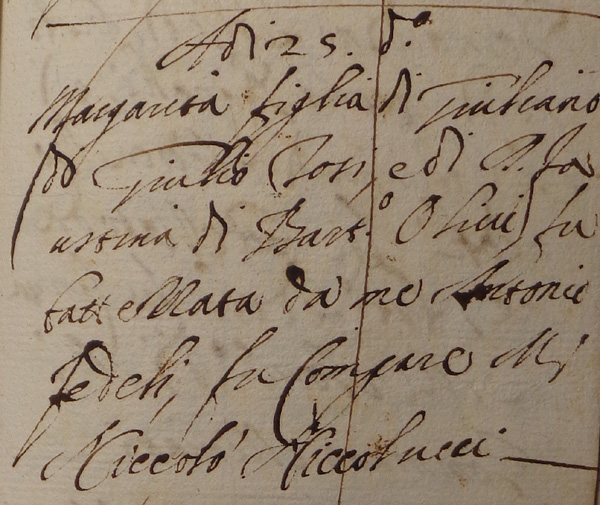 Adi 25. d.º
Margarita figlia di Giuliano
di Giulio e di D. Fa
ustina di Bart.º Olivi, fu
battezzata da me Antonio
Fedeli, fu Compare M.
Niccolò Niccolucci